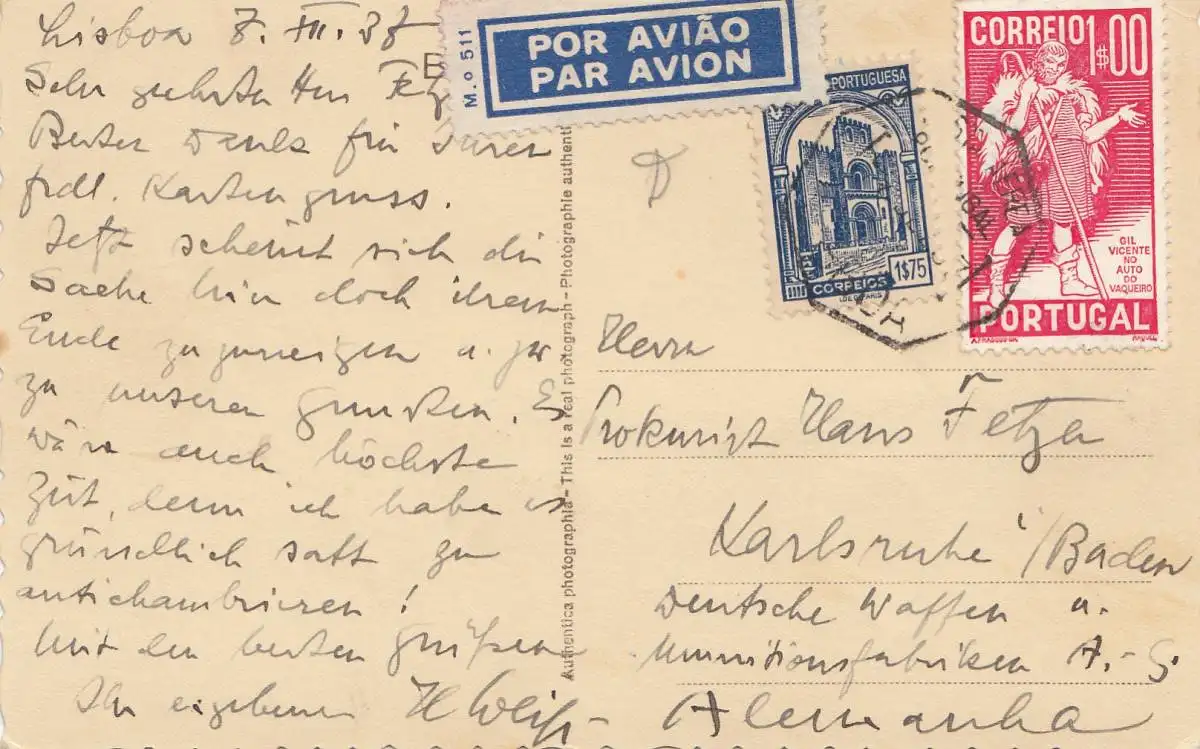 Lisboa 7. III. 37
Sehr geehrter Herr Fetz
Besten Dank für Ihren
frdl. Kartengruss.
Jetzt scheint sich die
Sache hier doch ihrem
Ende zuzuneigen u. zwar
zu unseren Gunsten. Es
wäre auch höchste
Zeit, denn ich habe es
gründlich satt zu
antichambrieren!
Mit den besten Grüßen
Ihr ergebener H Weiß
M.o 511
POR AVIÃO
PAR AVION
PORTUGUESA
1$75
CORREIOS
CORREIO 1$00
GIL
VICENTE
NO
AUTO
DO
VAQUEIRO
PORTUGAL
Authentica photographia - This is a real photograph - Photographie authenti
Herrn
Prokurist Hans Fetzer
Karlsruhe / Baden
Deutsche Waffen u.
Munitionsfabriken A.-G.
Alemanha